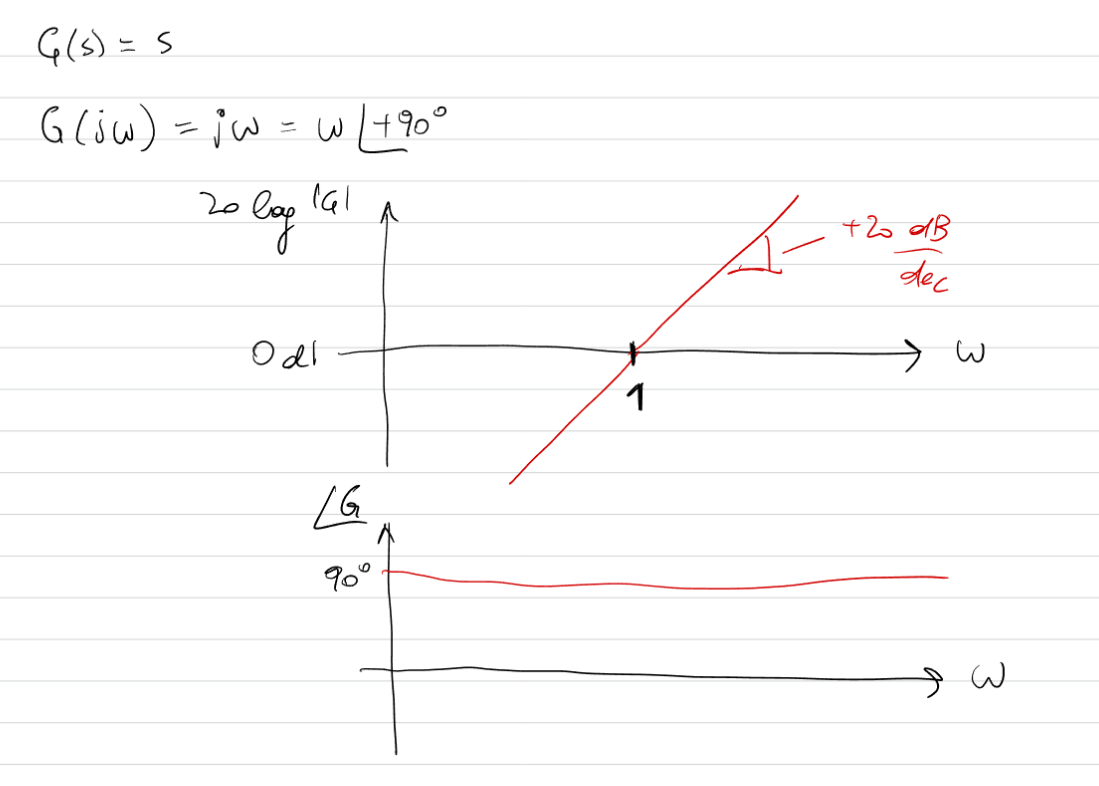 G(s) = s
G(jω) = jω = ω ∠+90°
20 log |G|
+20 dB/dec
0 dB
ω
1
∠G
90°
ω